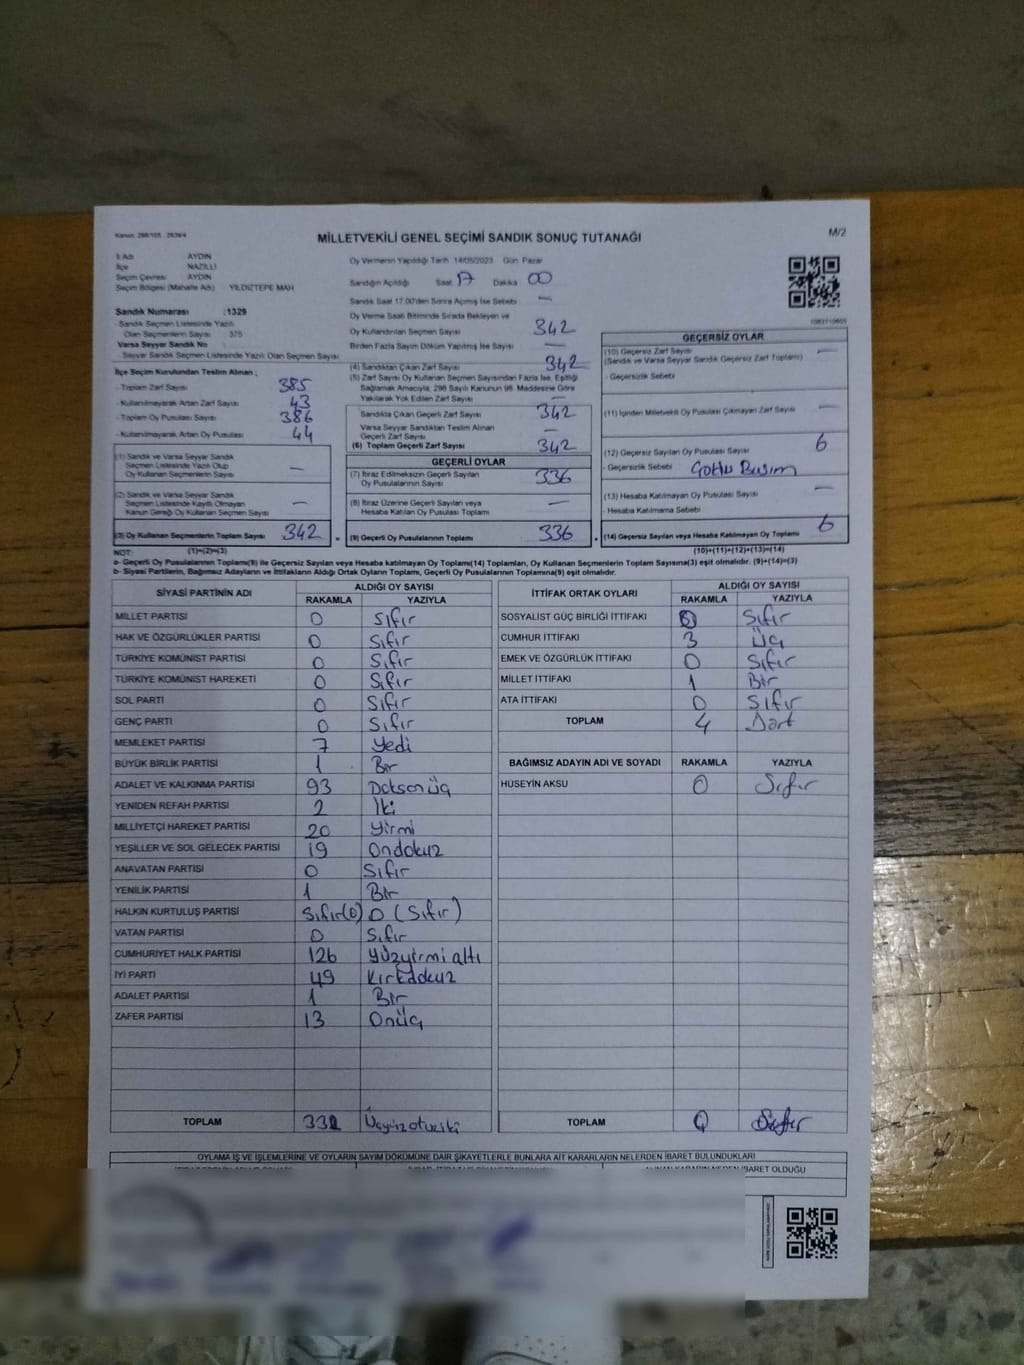 Kanun: 298/105 , 2839/4
MİLLETVEKİLİ GENEL SEÇİMİ SANDIK SONUÇ TUTANAĞI
M/2
İl Adı AYDIN
İlçe NAZİLLİ
Seçim Çevresi AYDIN
Seçim Bölgesi (Mahalle Adı) YILDIZTEPE MAH
Sandık Numarası :1329
Sandık Seçmen Listesinde Yazılı
Olan Seçmenlerin Sayısı : 375
Varsa Seyyar Sandık No
Seyyar Sandık Seçmen Listesinde Yazılı Olan Seçmen Sayısı
Oy Vermenin Yapıldığı Tarih 14/05/2023 Gün Pazar
Sandığın Açıldığı Saat 17 Dakika 00
Sandık Saat 17.00'den Sonra Açılmış İse Sebebi —
Oy Verme Saati Bitiminde Sırada Bekleyen ve
Oy Kullandırılan Seçmen Sayısı 342
Birden Fazla Sayım Döküm Yapılmış İse Sayısı —
İlçe Seçim Kurulundan Teslim Alınan ;
- Toplam Zarf Sayısı 385
- Kullanılmayarak Artan Zarf Sayısı 43
- Toplam Oy Pusulası Sayısı 386
- Kullanılmayarak Artan Oy Pusulası 44
(1) Sandık ve Varsa Seyyar Sandık
Seçmen Listesinde Yazılı Olup
Oy Kullanan Seçmenlerin Sayısı —
(2) Sandık ve Varsa Seyyar Sandık
Seçmen Listesinde Kayıtlı Olmayan
Kanun Gereği Oy Kullanan Seçmen Sayısı —
(3) Oy Kullanan Seçmenlerin Toplam Sayısı 342
(4) Sandıktan Çıkan Zarf Sayısı 342
(5) Zarf Sayısı Oy Kullanan Seçmen Sayısından Fazla İse, Eşitliği
Sağlamak Amacıyla, 298 Sayılı Kanunun 98. Maddesine Göre
Yakılarak Yok Edilen Zarf Sayısı —
Sandıkta Çıkan Geçerli Zarf Sayısı 342
Varsa Seyyar Sandıktan Teslim Alınan
Geçerli Zarf Sayısı —
(6) Toplam Geçerli Zarf Sayısı 342
GEÇERLİ OYLAR
(7) İtiraz Edilmeksizin Geçerli Sayılan
Oy Pusulalarının Sayısı 336
(8) İtiraz Üzerine Geçerli Sayılan veya
Hesaba Katılan Oy Pusulası Toplamı —
(9) Geçerli Oy Pusulalarının Toplamı 336
GEÇERSİZ OYLAR
(10) Geçersiz Zarf Sayısı —
(Sandık ve Varsa Seyyar Sandık Geçersiz Zarf Toplamı)
- Geçersizlik Sebebi
(11) İçinden Milletvekili Oy Pusulası Çıkmayan Zarf Sayısı —
(12) Geçersiz Sayılan Oy Pusulası Sayısı 6
- Geçersizlik Sebebi
(13) Hesaba Katılmayan Oy Pusulası Sayısı —
- Hesaba Katılmama Sebebi
(14) Geçersiz Sayılan veya Hesaba Katılmayan Oy Toplamı 6
NOT: (1)+(2)=(3) (10)+(11)+(12)+(13)=(14)
a- Geçerli Oy Pusulalarının Toplamı(9) ile Geçersiz Sayılan veya Hesaba katılmayan Oy Toplamı(14) Toplamları, Oy Kullanan Seçmenlerin Toplam Sayısına(3) eşit olmalıdır. (9)+(14)=(3)
b- Siyasi Partilerin, Bağımsız Adayların ve İttifakların Aldığı Ortak Oyların Toplamı, Geçerli Oy Pusulalarının Toplamına(9) eşit olmalıdır.
SİYASİ PARTİNİN ADI ALDIĞI OY SAYISI
RAKAMLA YAZIYLA
MİLLET PARTİSİ 0 Sıfır
HAK VE ÖZGÜRLÜKLER PARTİSİ 0 Sıfır
TÜRKİYE KOMÜNİST PARTİSİ 0 Sıfır
TÜRKİYE KOMÜNİST HAREKETİ 0 Sıfır
SOL PARTİ 0 Sıfır
GENÇ PARTİ 0 Sıfır
MEMLEKET PARTİSİ 7 Yedi
BÜYÜK BİRLİK PARTİSİ 1 Bir
ADALET VE KALKINMA PARTİSİ 93 Doksanüç
YENİDEN REFAH PARTİSİ 2 İki
MİLLİYETÇİ HAREKET PARTİSİ 20 Yirmi
YEŞİLLER VE SOL GELECEK PARTİSİ 19 Ondokuz
ANAVATAN PARTİSİ 0 Sıfır
YENİLİK PARTİSİ 1 Bir
HALKIN KURTULUŞ PARTİSİ Sıfır(0) 0 (Sıfır)
VATAN PARTİSİ 0 Sıfır
CUMHURİYET HALK PARTİSİ 126 Yüzyirmi altı
İYİ PARTİ 49 Kırkdokuz
ADALET PARTİSİ 1 Bir
ZAFER PARTİSİ 13 Onüç
TOPLAM 332 Üçyüzotuziki
İTTİFAK ORTAK OYLARI ALDIĞI OY SAYISI
RAKAMLA YAZIYLA
SOSYALİST GÜÇ BİRLİĞİ İTTİFAKI 0 Sıfır
CUMHUR İTTİFAKI 3 Üç
EMEK VE ÖZGÜRLÜK İTTİFAKI 0 Sıfır
MİLLET İTTİFAKI 1 Bir
ATA İTTİFAKI 0 Sıfır
TOPLAM 4 Dört
BAĞIMSIZ ADAYIN ADI VE SOYADI RAKAMLA YAZIYLA
HÜSEYİN AKSU 0 Sıfır
TOPLAM 0 Sıfır
OYLAMA İŞ VE İŞLEMLERİNE VE OYLARIN SAYIM DÖKÜMÜNE DAİR ŞİKAYETLERLE BUNLARA AİT KARARLARIN NELERDEN İBARET BULUNDUKLARI
ALINAN KARARIN NEDEN İBARET OLDUĞU